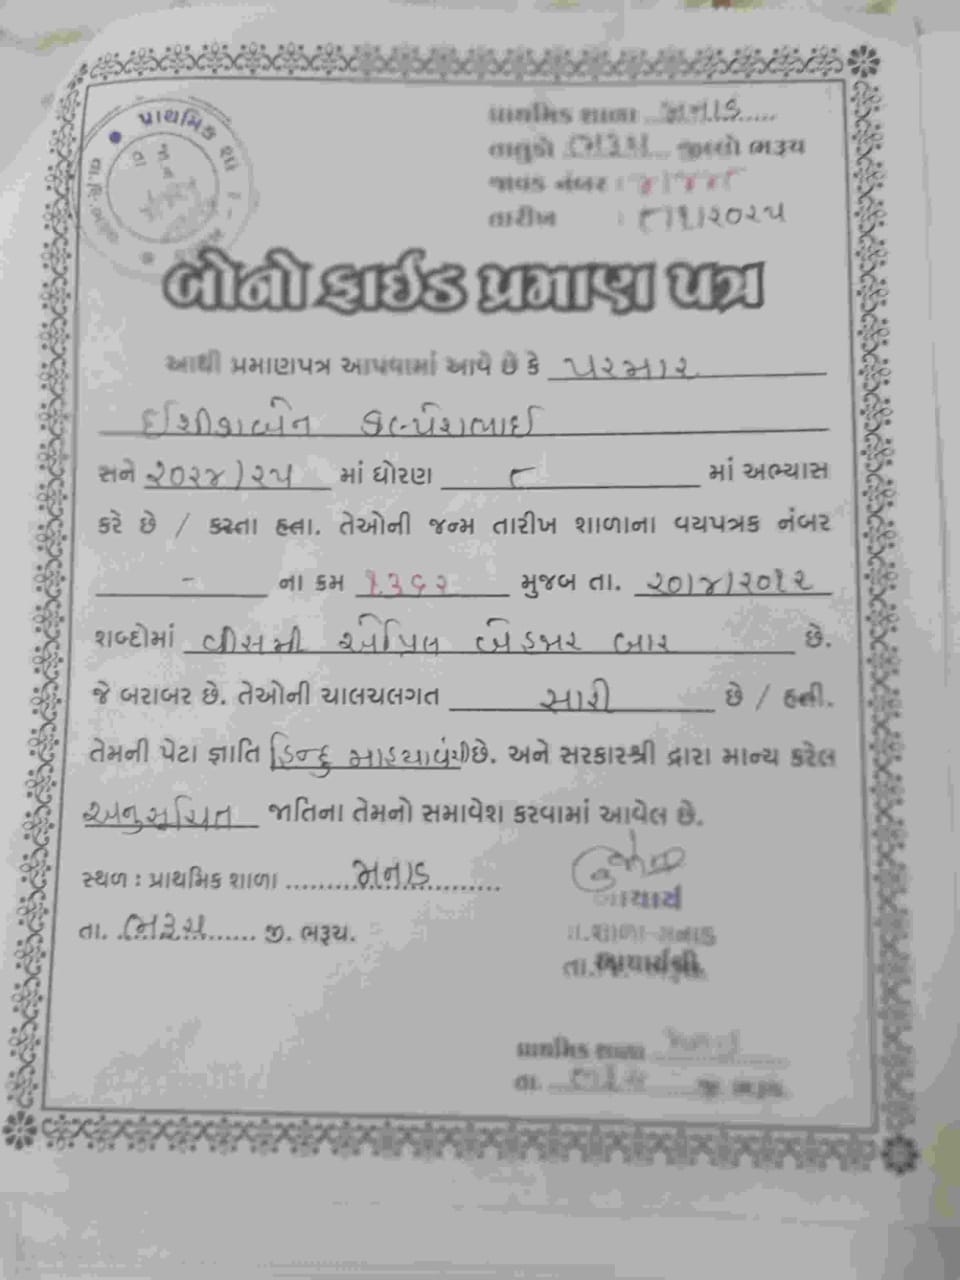 પ્રાથમિક શાળા મનાડ
તાલુકો ભરૂચ જીલ્લો ભરૂચ
જાવક નંબર :
તારીખ : ૮/૧/૨૦૨૫
બોનોફાઈડ પ્રમાણ પત્ર
આથી પ્રમાણપત્ર આપવામાં આવે છે કે પરમાર
કલ્પેશભાઈ
સને ૨૦૨૪/૨૫ માં ધોરણ ૮ માં અભ્યાસ
કરે છે / કરતા હતા. તેઓની જન્મ તારીખ શાળાના વયપત્રક નંબર
- ના ક્રમ ૧૩૬૨ મુજબ તા. ૨૦/૪/૨૦૧૨
શબ્દોમાં વીસમી એપ્રિલ બેહજાર બાર છે.
જે બરાબર છે. તેઓની ચાલચલગત સારી છે / હતી.
તેમની પેટા જ્ઞાતિ હિન્દુ માહ્યાવંશી છે. અને સરકારશ્રી દ્વારા માન્ય કરેલ
અનુસૂચિત જાતિના તેમનો સમાવેશ કરવામાં આવેલ છે.
સ્થળ : પ્રાથમિક શાળા મનાડ
તા. ભરૂચ જી. ભરૂચ.
આચાર્ય
શાળા-મનાડ
તા. આચાર્યશ્રી
પ્રાથમિક શાળા
તા. ભરૂચ જી. ભરૂચ